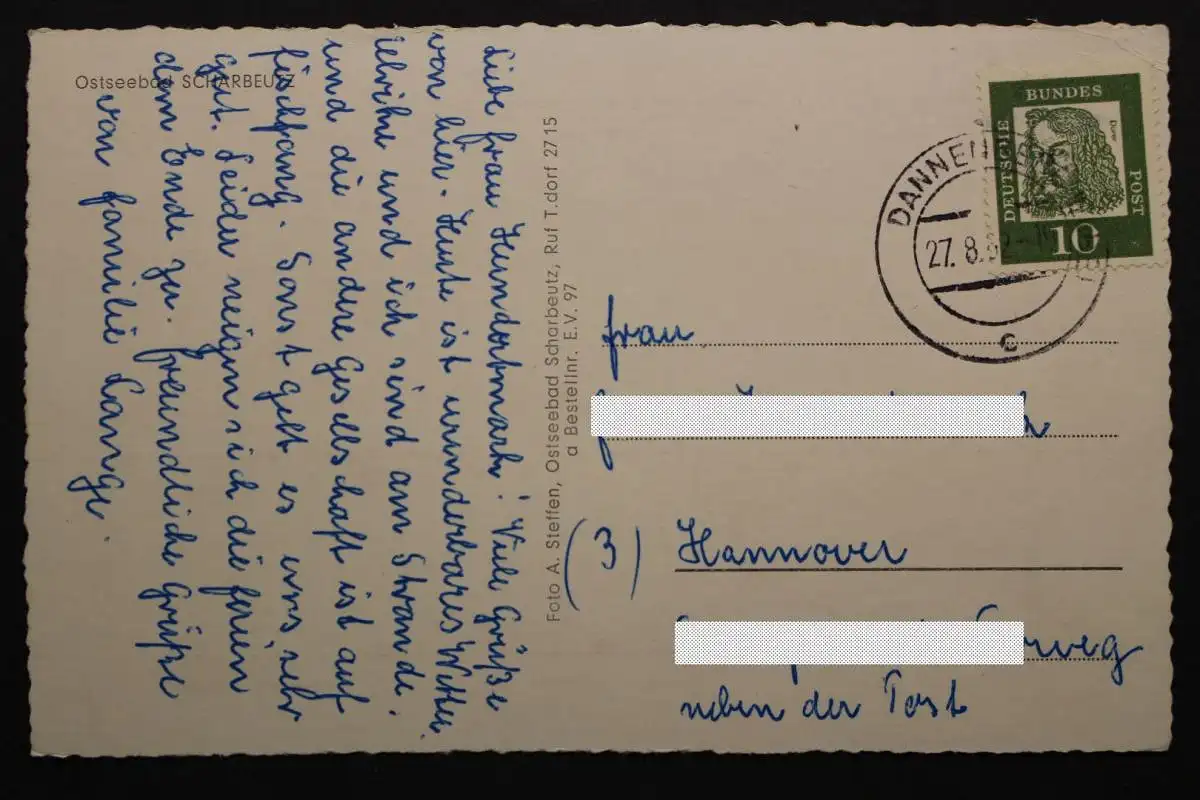 Ostseebad SCHARBEUTZ
Liebe Frau Hundertmark! Viele Grüße
von hier. Heute ist wunderbares Wetter.
und ich sind am Strande.
und die andere Gesellschaft ist auf
Fischfang. Sonst geht es uns sehr
gut. Leider neigen sich die Ferien
dem Ende zu. Freundliche Grüße
von Familie Lange.
Foto A. Steffen, Ostseebad Scharbeutz, Ruf T.dorf 27 15
a Bestellnr. E.V. 97
DEUTSCHE BUNDES POST
Dürer
10
27. 8.
c
Frau
(3) Hannover
weg
neben der Post